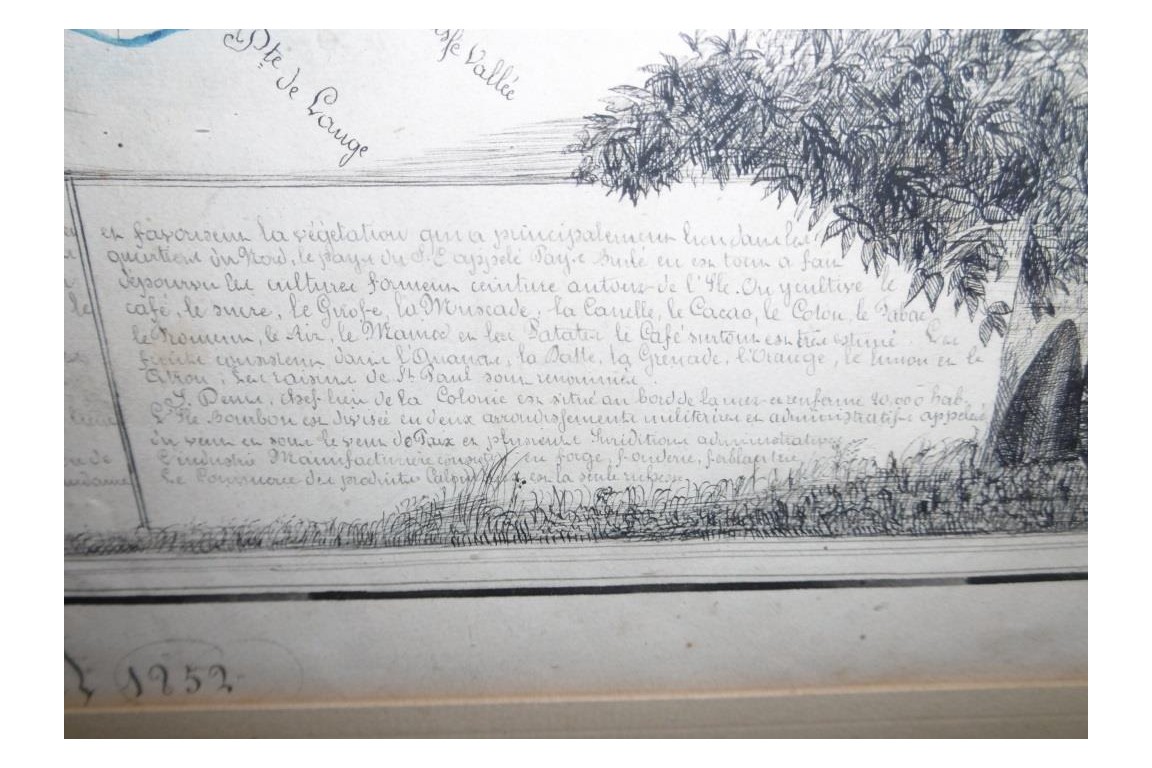 Pte de Lange
sse Vallée
en favorisent la végétation qui a principalement lieu dans les
quartiers du Nord, le pays du S.E appelé Pays Brulé en est tout a fait
dépourvu les cultures forment ceinture autour de l'Ile. On y cultive le
café, le sucre, le Girofe, la Muscade, la Canelle, le Cacao, le Coton, le Tabac
le Froment, le Riz, le Manioc et les Patates le Café surtout est très estimé. Les
fruits consistent dans l'Ananas, la Datte, la Grenade, l'Orange, le limon et le
Citron; Les raisins de St Paul sont renommés.
St Denis, chef lieu de la Colonie est situé au bord de la mer et renferme 20,000 hab.
L'Ile Bourbon est divisée en deux arrondissements militaires et administratifs appelés
du vent et sous le vent de Paix et plusieurs Juriditions administratives
L'industrie Manufacturière consiste en forge, fonderie, ferblanterie
Le Commerce des produits est la seule richesse
le
de
1852